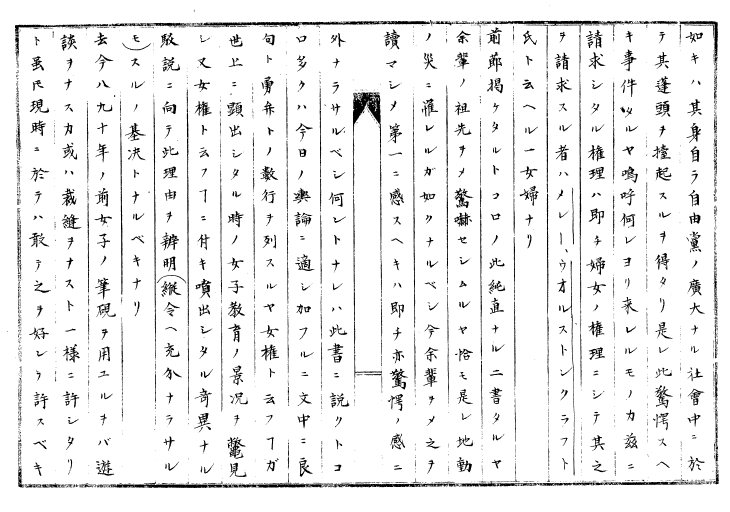 如キハ其身自ラ自由黨ノ廣大ナル社會中ニ於
テ其蓬頭ヲ擡起スルヲ得タリ是レ此驚愕スヘ
キ事件以ルヤ嗚呼何レヨリ来レルモノカ茲ニ
請求シタル権理ハ即チ婦女ノ権理ニシテ其之
ヲ請求スル者ハメレー、ウオルストンクラフト
氏ト云ヘル一女婦ナリ
前節掲ケタルトコロノ此純直ナル二書タルヤ
余輩ノ祖先ヲメ驚嚇セシムルヤ恰モ是レ地動
ノ災ニ罹レルガ如クナルベシ今余輩ヲメ之ヲ
讀マシメ第一ニ感スヘキハ即チ亦驚愕ノ感ニ
外ナラサルベシ何レトナレハ此書ニ説クトコ
ロ多クハ今日ノ輿論ニ適シ加フルニ文中ニ良
句ト勇弁トノ数行ヲ列スルヤ女権ト云フヿガ
世上ニ顕出シタル時ノ女子教育ノ景况ヲ瞥見
シ又女権ト云フヿニ付キ噴出シタル奇異ナル
駁説ニ向テ此理由ヲ辨明(縦令ヘ充分ナラサル
モ)スルノ基决トナルベキナリ
去今八九十年ノ前女子ノ筆硯ヲ用ユルヲバ遊
談ヲナスカ或ハ裁縫ヲナスト一様ニ許シタリ
ト虽氏現時ニ於テハ敢テ之ヲ好レラ許スベキ